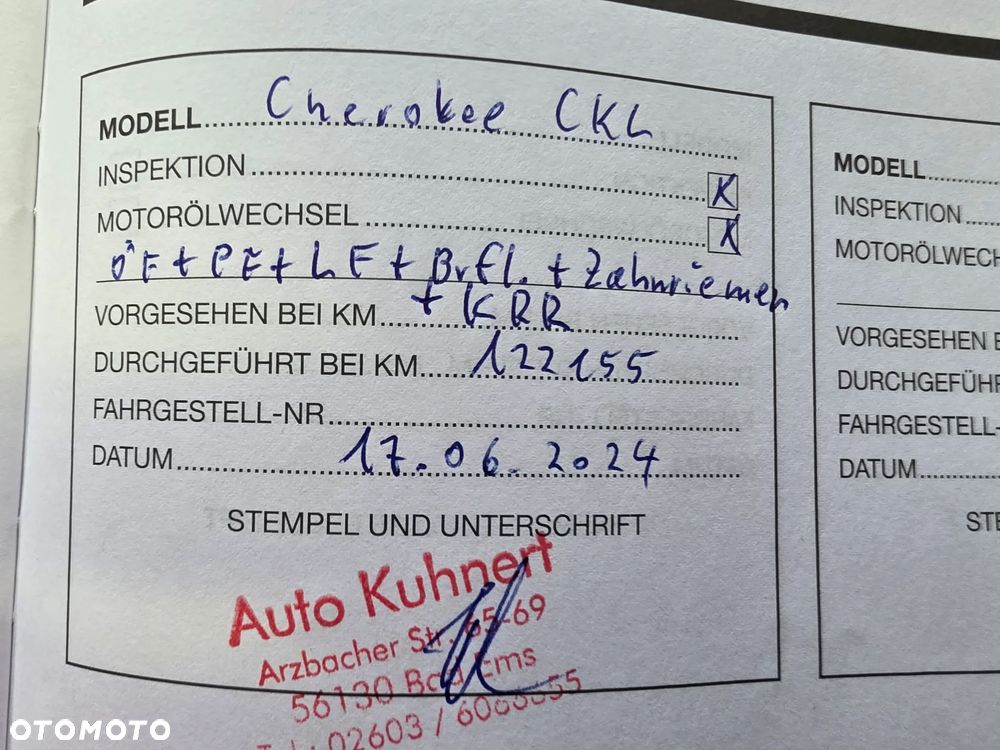 MODELL Cherokee CKL
INSPEKTION X
MOTORÖLWECHSEL X
ÖF + PF + LF + Br.fl. + Zahnriemen
+ KRR
VORGESEHEN BEI KM
DURCHGEFÜHRT BEI KM 122155
FAHRGESTELL-NR
DATUM 17.06.2024
STEMPEL UND UNTERSCHRIFT
Auto Kuhnert
Arzbacher Str. 65-69
56130 Bad Ems
02603 /
MODELL
INSPEKTION
MOTORÖLWECH
VORGESEHEN B
DURCHGEFÜHR
FAHRGESTELL-
DATUM
STE
OTOMOTO